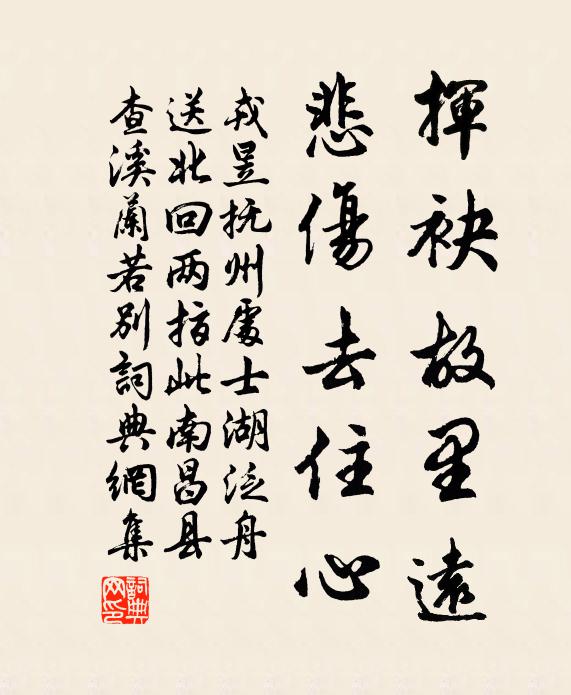 揮袂故里遠
悲傷去住心
戎昱抚州處士湖泛舟
送北回两指此南昌县
查溪蘭若别詞典網集
詞典网印